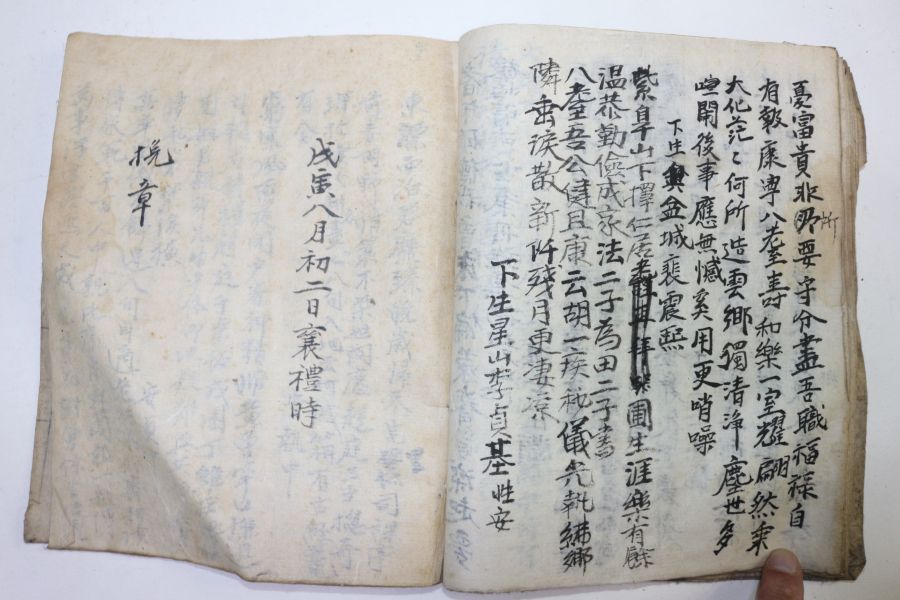 憂富貴非所要守分盡吾職福祿自
有穀康寧八耋壽和樂一室耀翩然乘
大化茫〻何所造雲鄉獨清淨塵世多
喧鬧後事應無憾奚用更哨噪
下生盆城裴震熙
紫阜山下擇仁居圃生涯樂有餘
溫恭勤儉成家法二子為田二子書
八耋吾公健且康云胡一疾祕儀光執紼鄉
隣垂淚散新阡殘月更凄凉
下生星山李貞基性安
戊寅八月初二日襄禮時
挽章